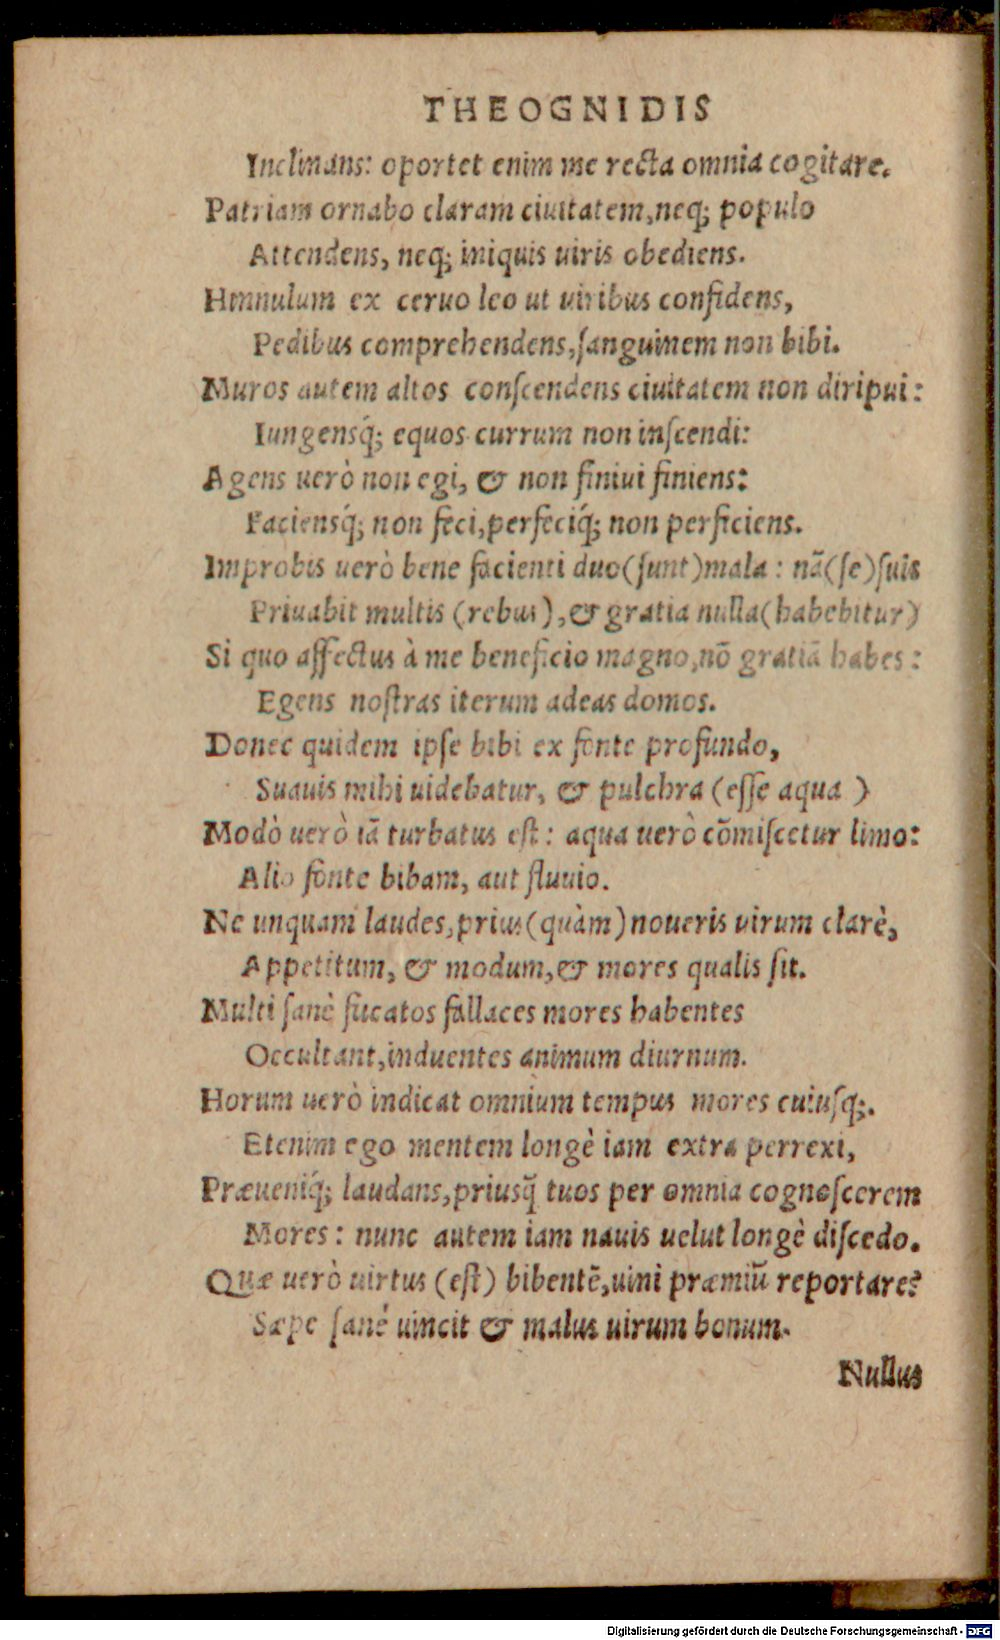 THEOGNIDIS
Inclinans: oportet enim me recta omnia cogitare.
Patriam ornabo claram ciuitatem, neq; populo
Attendens, neq; iniquis uiris obediens.
Hinnulum ex ceruo leo ut uiribus confidens,
Pedibus comprehendens, sanguinem non bibi.
Muros autem altos conscendens ciuitatem non diripui:
Iungensq́; equos currum non inscendi:
Agens uerò non egi, & non finiui finiens:
Faciensq́; non feci, perfeciq́; non perficiens.
Improbis uerò bene facienti duo (sunt) mala: nã (se) suis
Priuabit multis (rebus), & gratia nulla (habebitur)
Si quo affectus à me beneficio magno, nõ gratiã habes:
Egens nostras iterum adeas domos.
Donec quidem ipse bibi ex fonte profundo,
Suauis mihi uidebatur, & pulchra (esse aqua )
Modò uerò iã turbatus est: aqua uerò cõmiscetur limo:
Alio fonte bibam, aut fluuio.
Ne unquam laudes, prius (quàm) noueris uirum clarè,
Appetitum, & modum, & mores qualis sit.
Multi sanè fucatos fallaces mores habentes
Occultant, induentes animum diurnum.
Horum uerò indicat omnium tempus mores cuiusq;.
Etenim ego mentem longè iam extra perrexi,
Præueniq́; laudans, priusq̃ tuos per omnia cognoscerem
Mores: nunc autem iam nauis uelut longè discedo.
Quæ uerò uirtus (est) bibentē, uini præmiũ reportare?
Sæpe sané uincit & malus uirum bonum.
Nullus
Digitalisierung gefördert durch die Deutsche Forschungsgemeinschaft - DFG